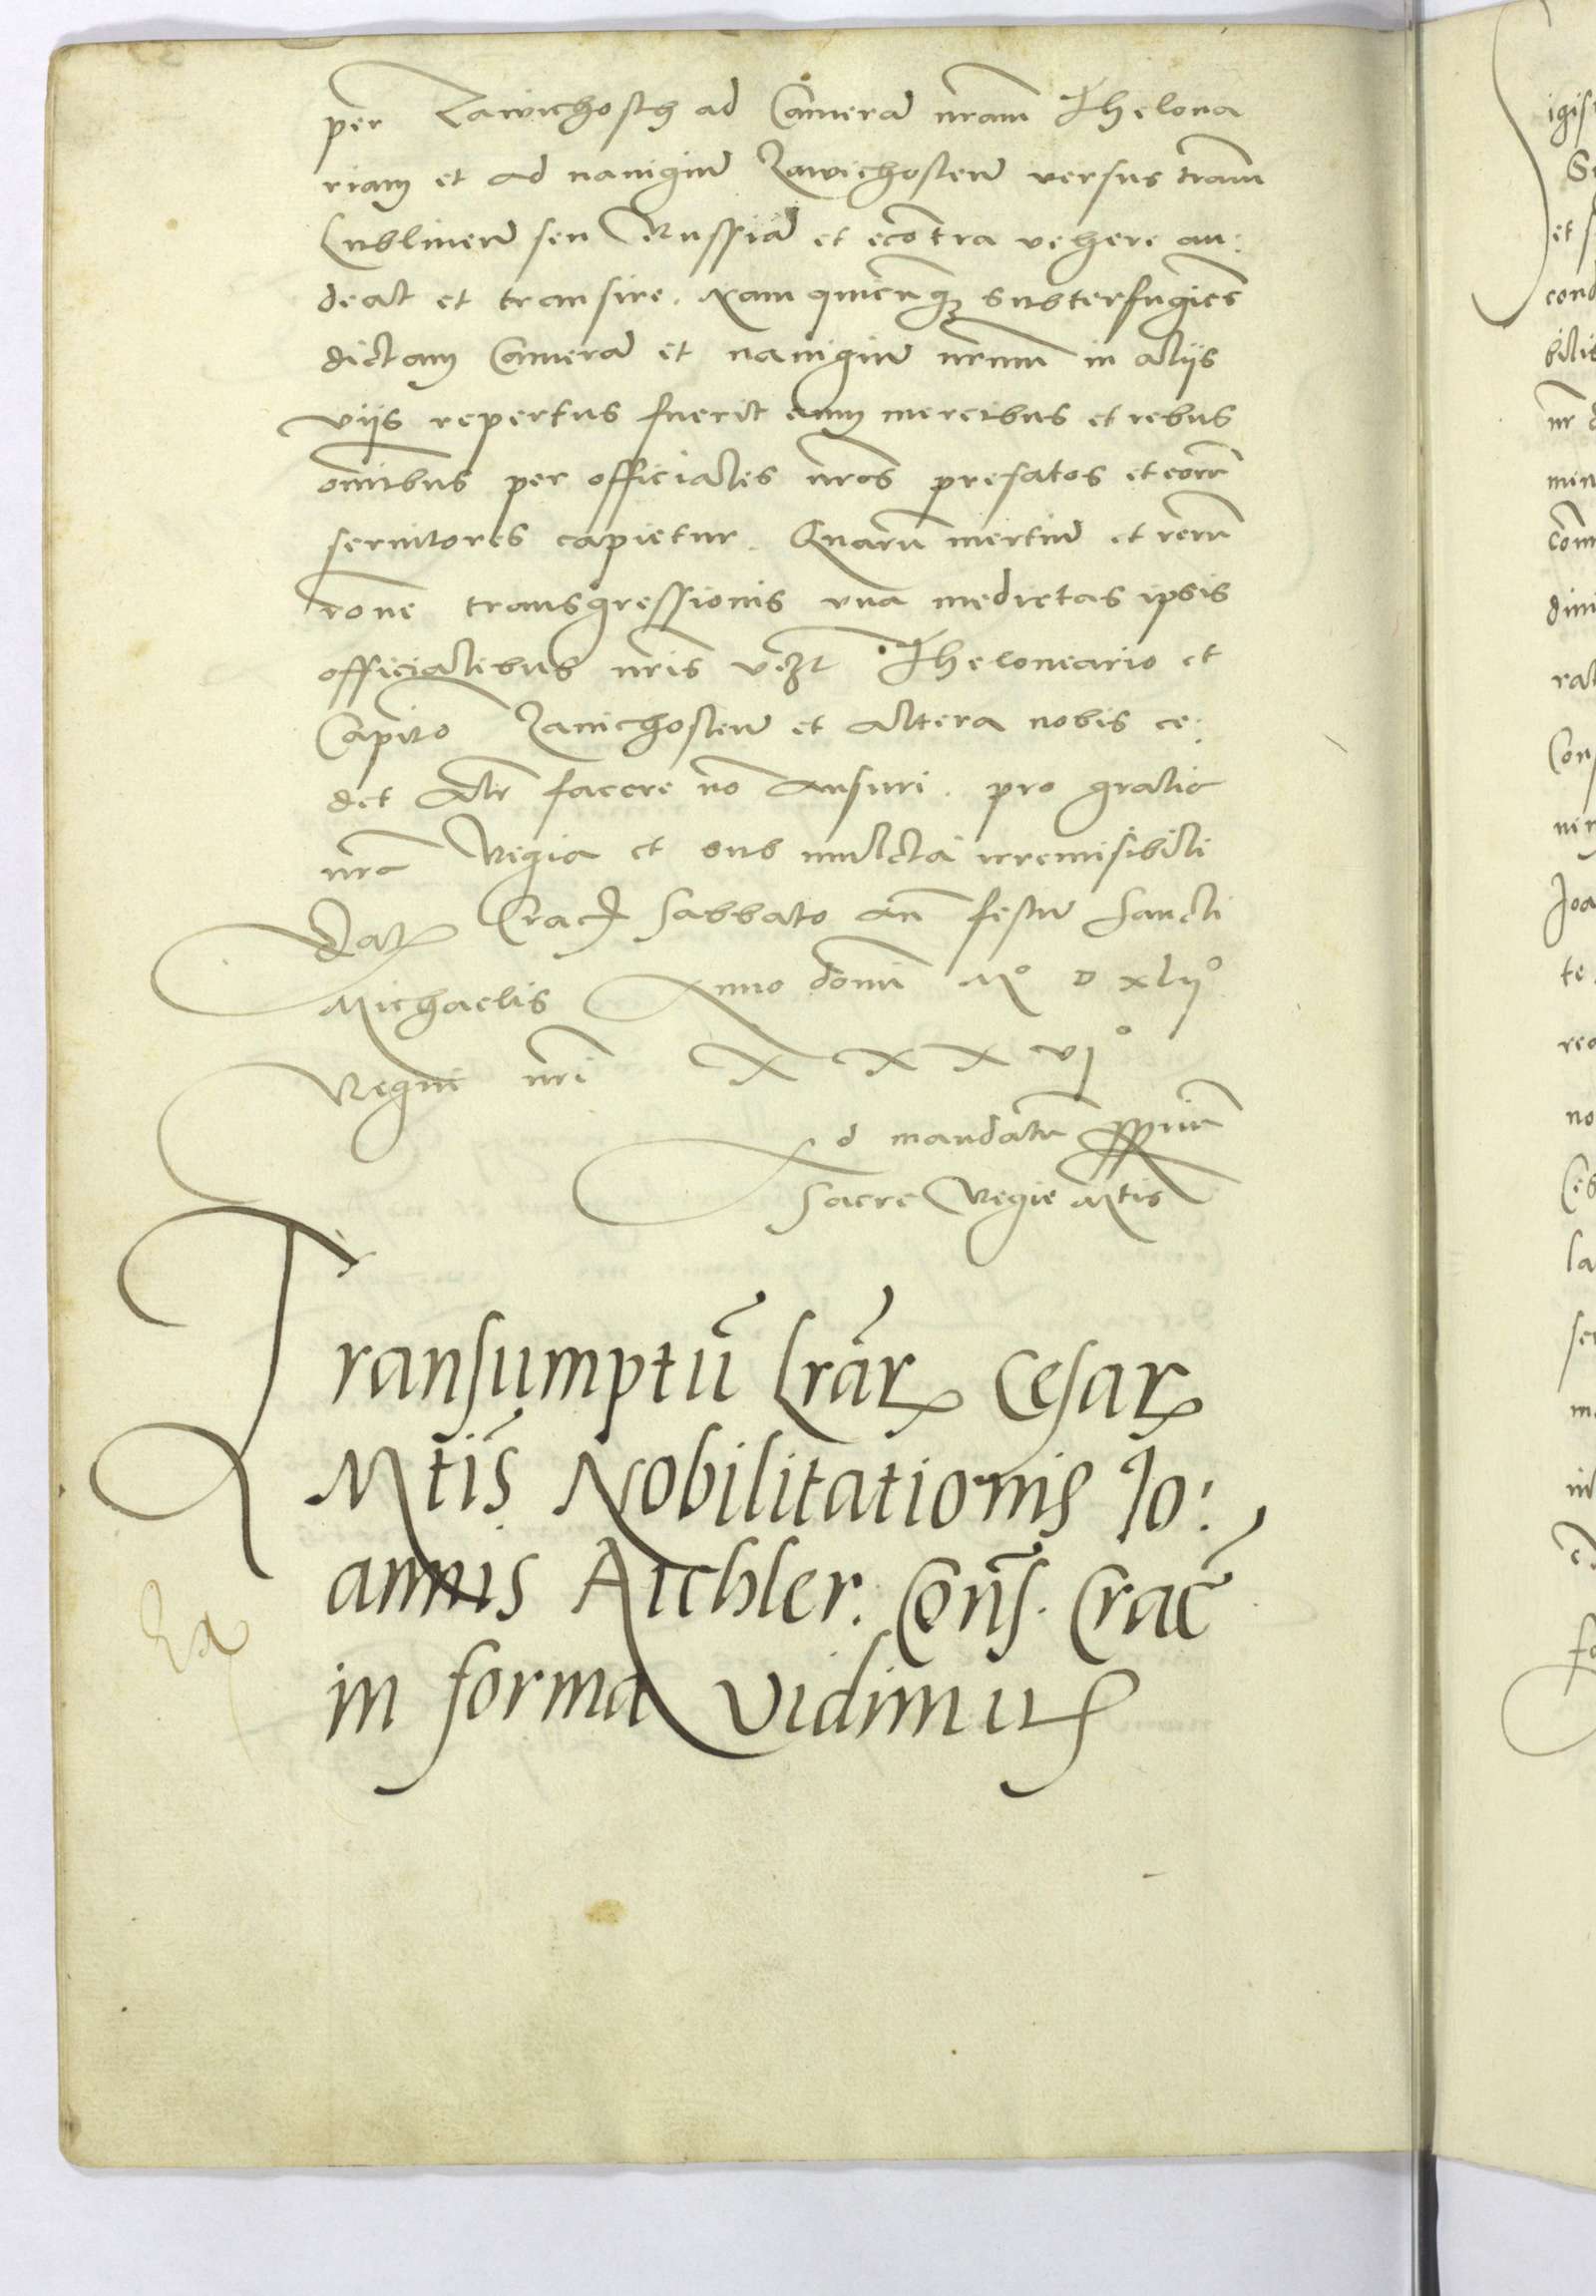 per Zawichosth ad Camerā nr̄am Thelona
riam et ad nauigiū Zawichosten̄ versus tr̄am
Lublinen̄ seu Russiā et econtra vehere au:
deāt et transire. Nam quicunq; subterfugiēs
dictam Camerā et nauigiū nr̄um in alijs
vijs repertus fuerit cum mercibus et rebus
om̄ibus per officiales nr̄os prefatos et eorū
seruitores capietur. Quarū mertiū et rerū
rōne transgressionis vna medietas ipsis
officialibus nr̄is vcz̄t Theloneario et
Capit̄o Zauichosten̄ et altera nobis ce:
det Alr̄ facere nō ansuri. pro gratia
nr̄a Regia et sub mulcta irremisibili
Dat̄ Crac̄ Sabbato an̄ festū Sancti
Michaelis Anno domī Mº D xlijº
Regni nr̄i XXX vjº
Ad mandatū ppriū
Sacre Regie Mtis
Transumptū Lrāꝝ Cesaꝝ
Mtīs Nobilitationis Jo:
annis Aichler. Conſ̄. Crac̄
in forma Vidimus
Ex
igis
S
et s
cond
bilis
nr̄
min
com
dimi
rat
Con
ner
Joa
te
reo
no
Ces
la
ser
ma
in
fo